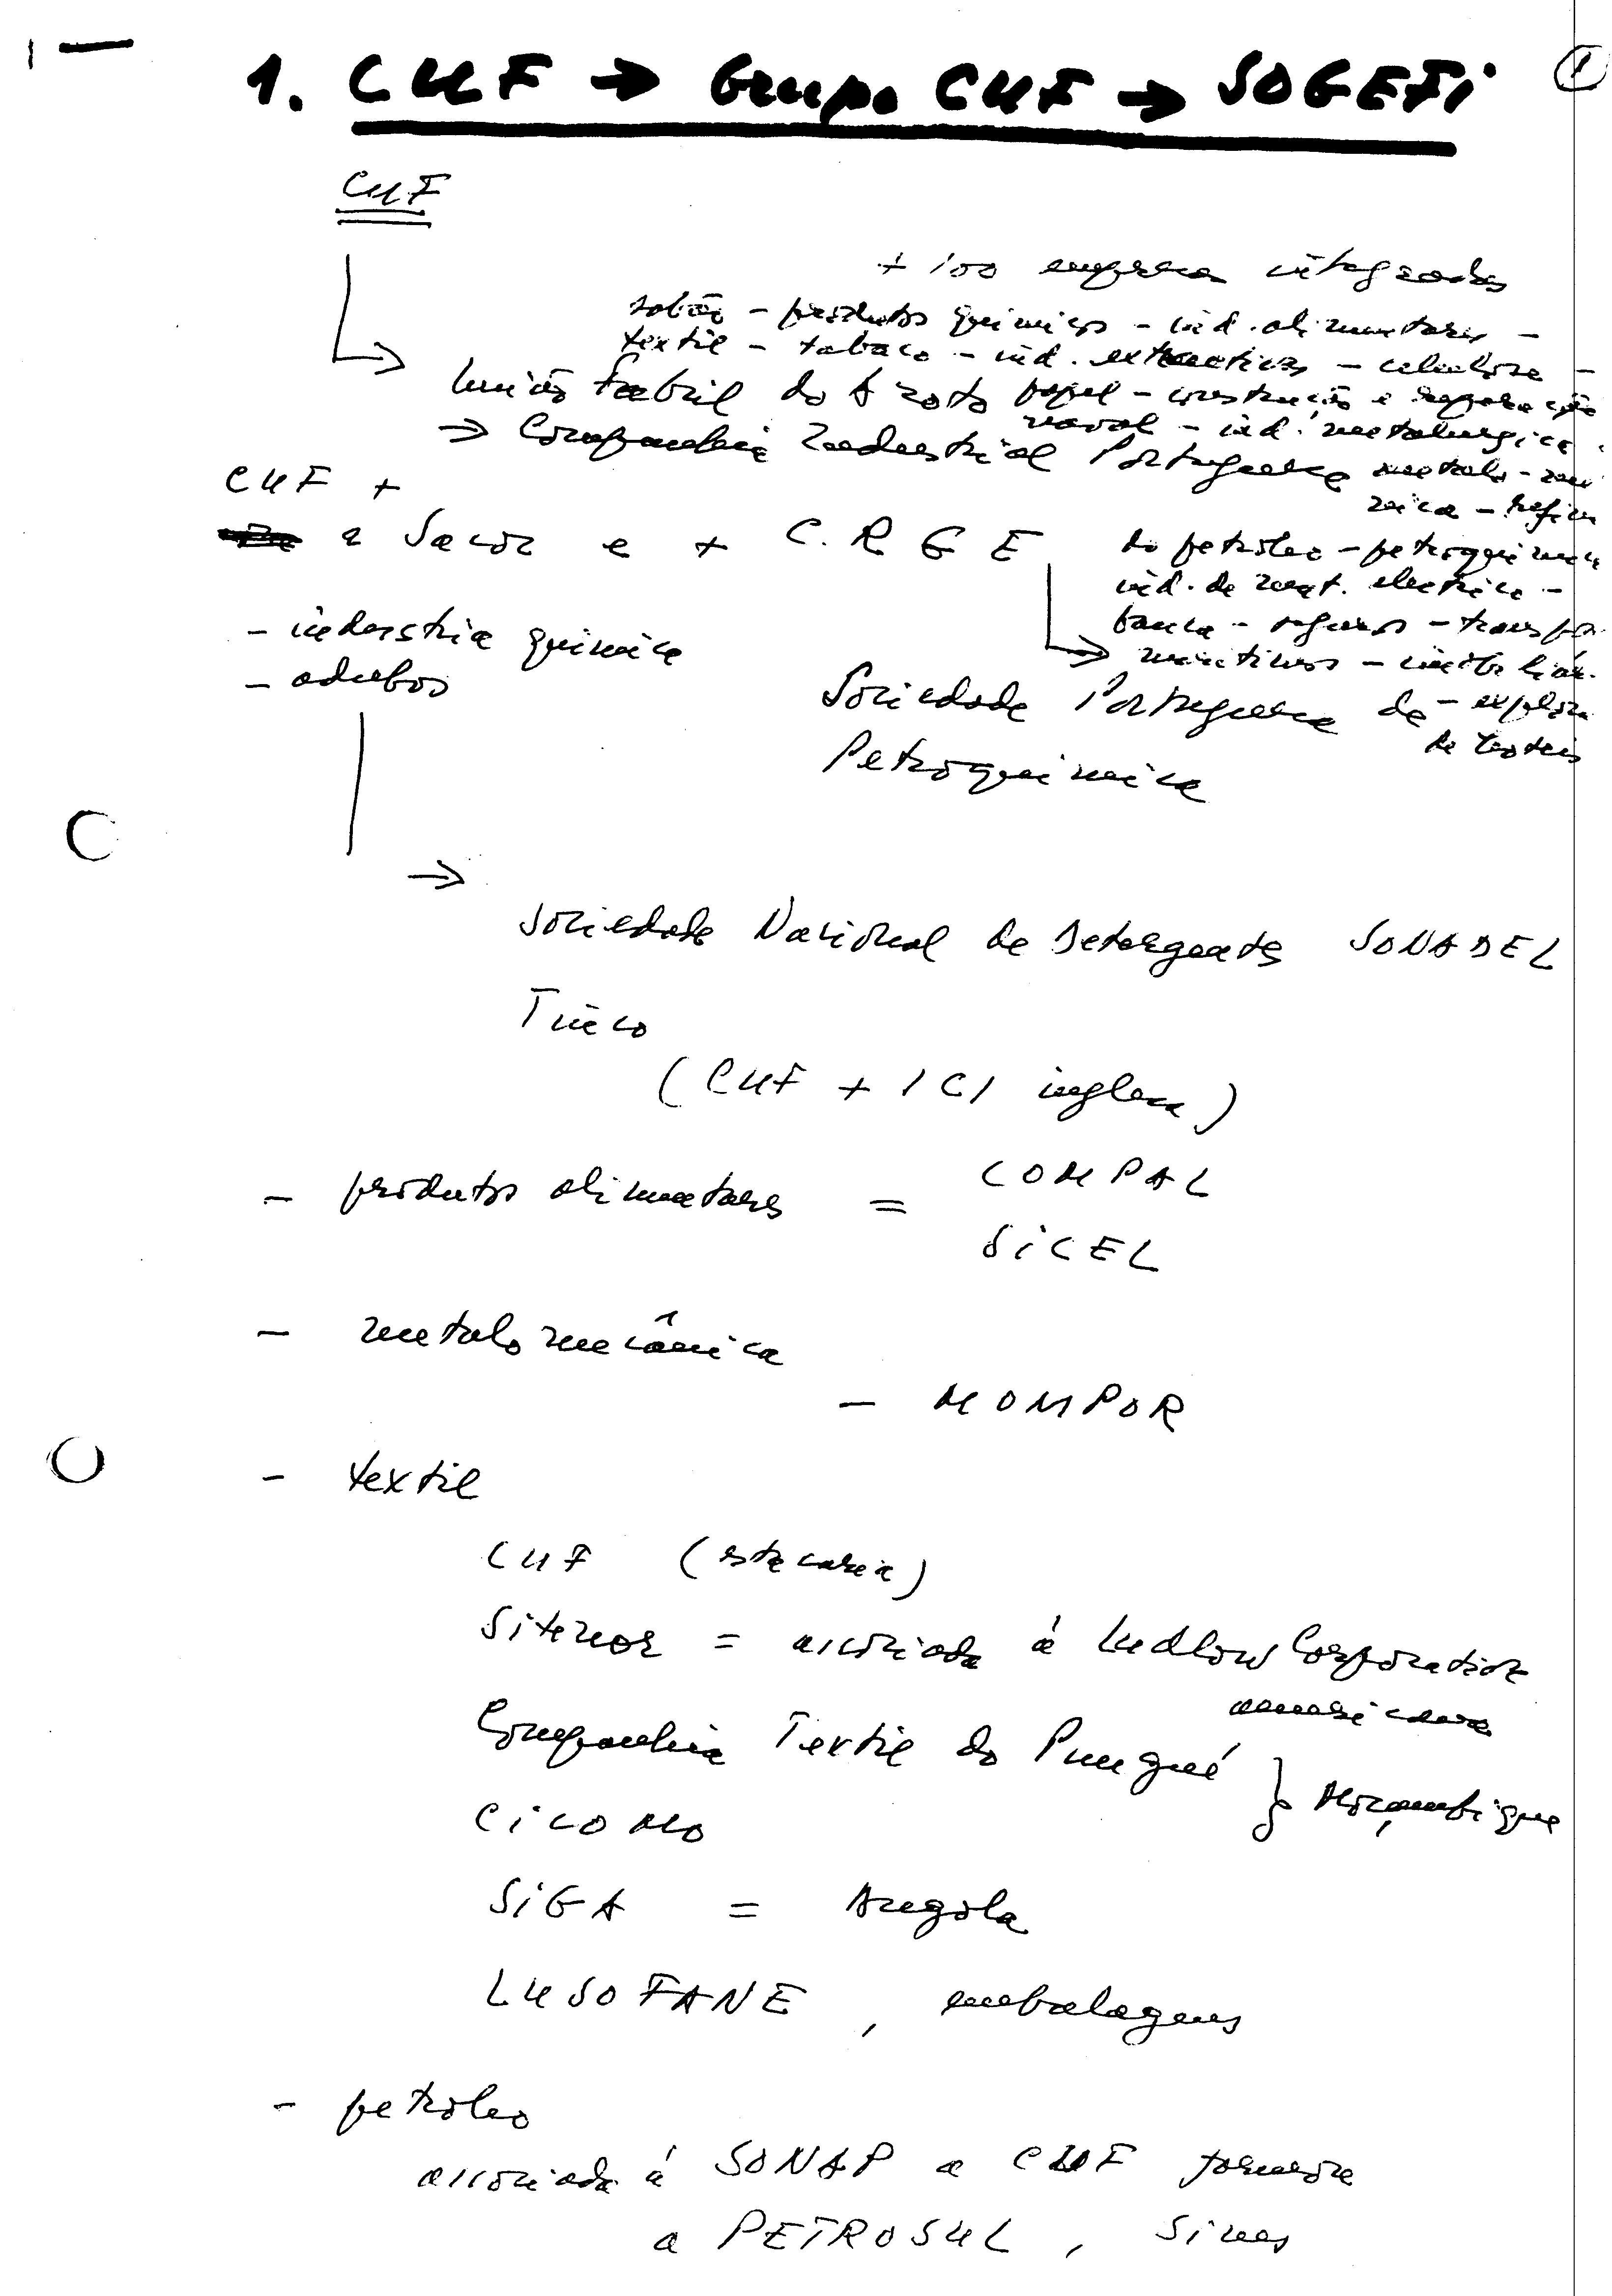 1. CUF → Grupo CUF → SOGEFI
1
CUF
+ 100 empresas integradas
sabão - produtos químicos - ind. alimentares -
textil - tabaco - ind. extractivas - celulose -
União Fabril do Azoto papel - construção e reparação
naval - ind. metalurgica
⇒ Companhia Industrial Portuguesa metalo-me
cânica - refin
CUF +
a Sacor e + C.R.G.E
do petróleo - petroquimica
ind. de mat. electrico -
banca - seguros - transpor
maritimos - imobiliár.
- industria quimica
- adubos
Sociedade Portuguesa de
- explora
de hoteis
Petroquimica
→
Sociedade Nacional de Detergentes SONADEL
Tinco
(CUF + ICI inglesa)
- produtos alimentares = COMPAL
SICEL
- metalomecânica
- MOMPOR
- textil
CUF (estacaria)
Sitenor = associada á Ludlow Corporation
americana
Companhia Textil do Pungué } Moçambique
CICOMO
SIGA = Angola
LUSOFANE, embalagens
- petroleo
associada á SONAP a CUF formara
a PETROSUL, Sines